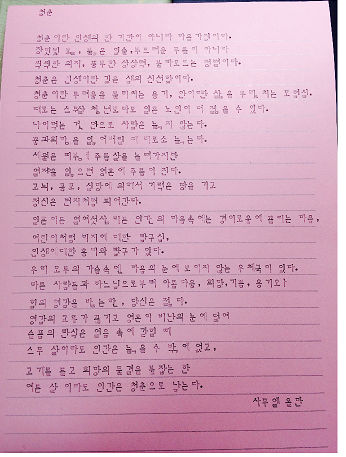 청춘
청춘이란 인생의 한 기간이 아니라 마음가짐이다.
장밋빛 볼, 붉은 입술, 부드러운 무릎이 아니라
씩씩한 의지, 풍부한 상상력, 불타오르는 정열이다.
청춘은 인생이란 깊은 샘의 신선함이다.
청춘이란 두려움을 물리치는 용기, 안이한 모험심.
때로는 스무살 청년보다도 예순 노인이 더 젊을 수 있다.
나이먹는 것 만으로 사람은 늙지 않는다.
꿈과희망을 잃어버릴 때 비로소 늙는다.
세월은 피부에 주름살을 늘려가지만
열정을 잃으면 영혼에 주름이 진다.
고뇌, 공포, 실망에 의해서 기력은 땅을 기고
정신은 먼지처럼 되어간다.
일흔이든 열여섯이든 인간의 마음속에는 경이로움에 끌리는 마음,
어린이처럼 미지에 대한 탐구심,
인생에 대한 흥미와 환희가 있다.
우리 모두의 가슴속엔 마음의 눈에 보이지 않는 우체국이 있다.
다른 사람들과 하느님으로부터 아름다움, 희망, 기쁨, 용기와
힘의 영감을 받는 한, 당신은 젊다.
영감의 교류가 끊기고 영혼이 비난의 눈에 덮여
슬픔의 얼음 속에 갇힐 때
스무 살이라도 인간은 늙을 수 밖에 없고,
고개를 들고 희망의 물결을 붙잡는 한
여든 살 이라도 인간은 청춘으로 남는다.
사무엘 울만